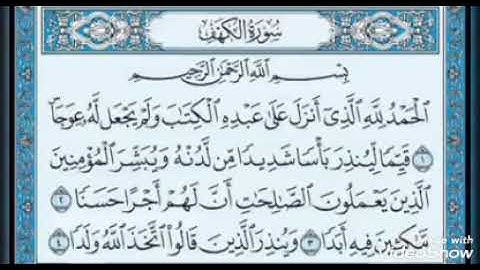 سُورَةُ الكَهْفِ
بِسْمِ اللَّهِ الرَّحْمَٰنِ الرَّحِيمِ
الْحَمْدُ لِلَّهِ الَّذِي أَنزَلَ عَلَىٰ عَبْدِهِ الْكِتَٰبَ وَلَمْ يَجْعَل لَّهُ عِوَجَاۜ
١ قَيِّمًا لِّيُنذِرَ بَأْسًا شَدِيدًا مِّن لَّدُنْهُ وَيُبَشِّرَ الْمُؤْمِنِينَ
الَّذِينَ يَعْمَلُونَ الصَّٰلِحَٰتِ أَنَّ لَهُمْ أَجْرًا حَسَنًا ٢
مَّٰكِثِينَ فِيهِ أَبَدًا ٣ وَيُنذِرَ الَّذِينَ قَالُوا اتَّخَذَ اللَّهُ وَلَدًا ٤
Made with
VideoShow